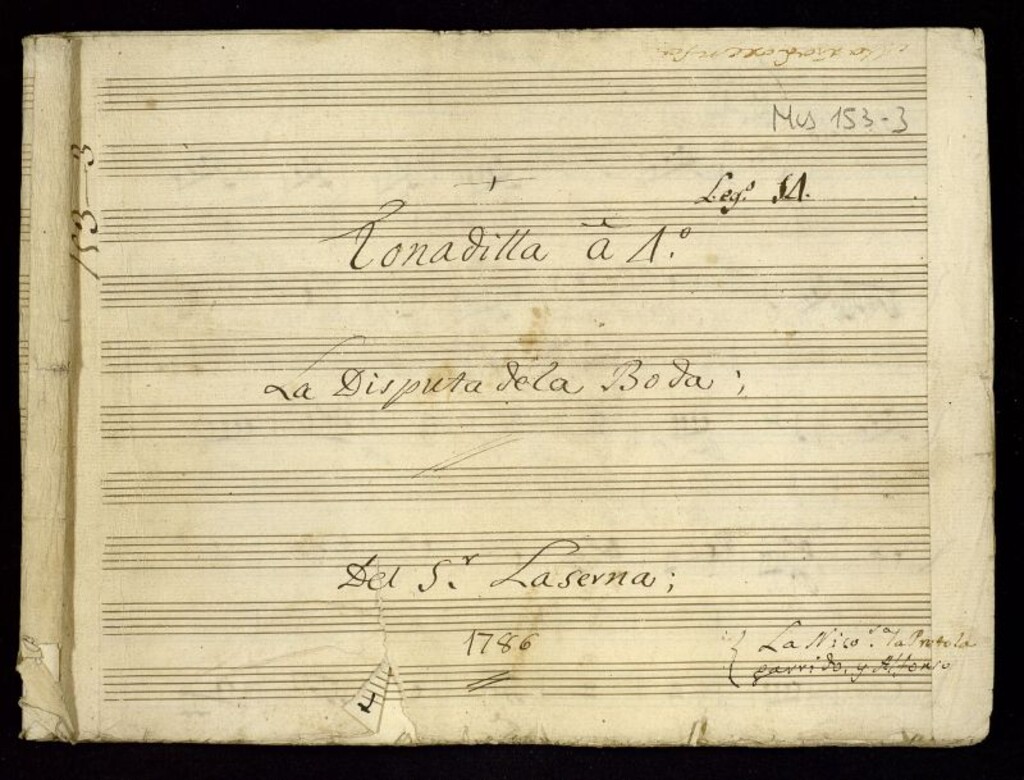 Mus 153-3
153-3
Leg.º 14.
Tonadilla à 4.º
La Disputa dela Boda;
Del S.r Laserna;
1786
La Nico.sa la Protola
garrido, y Alfonso